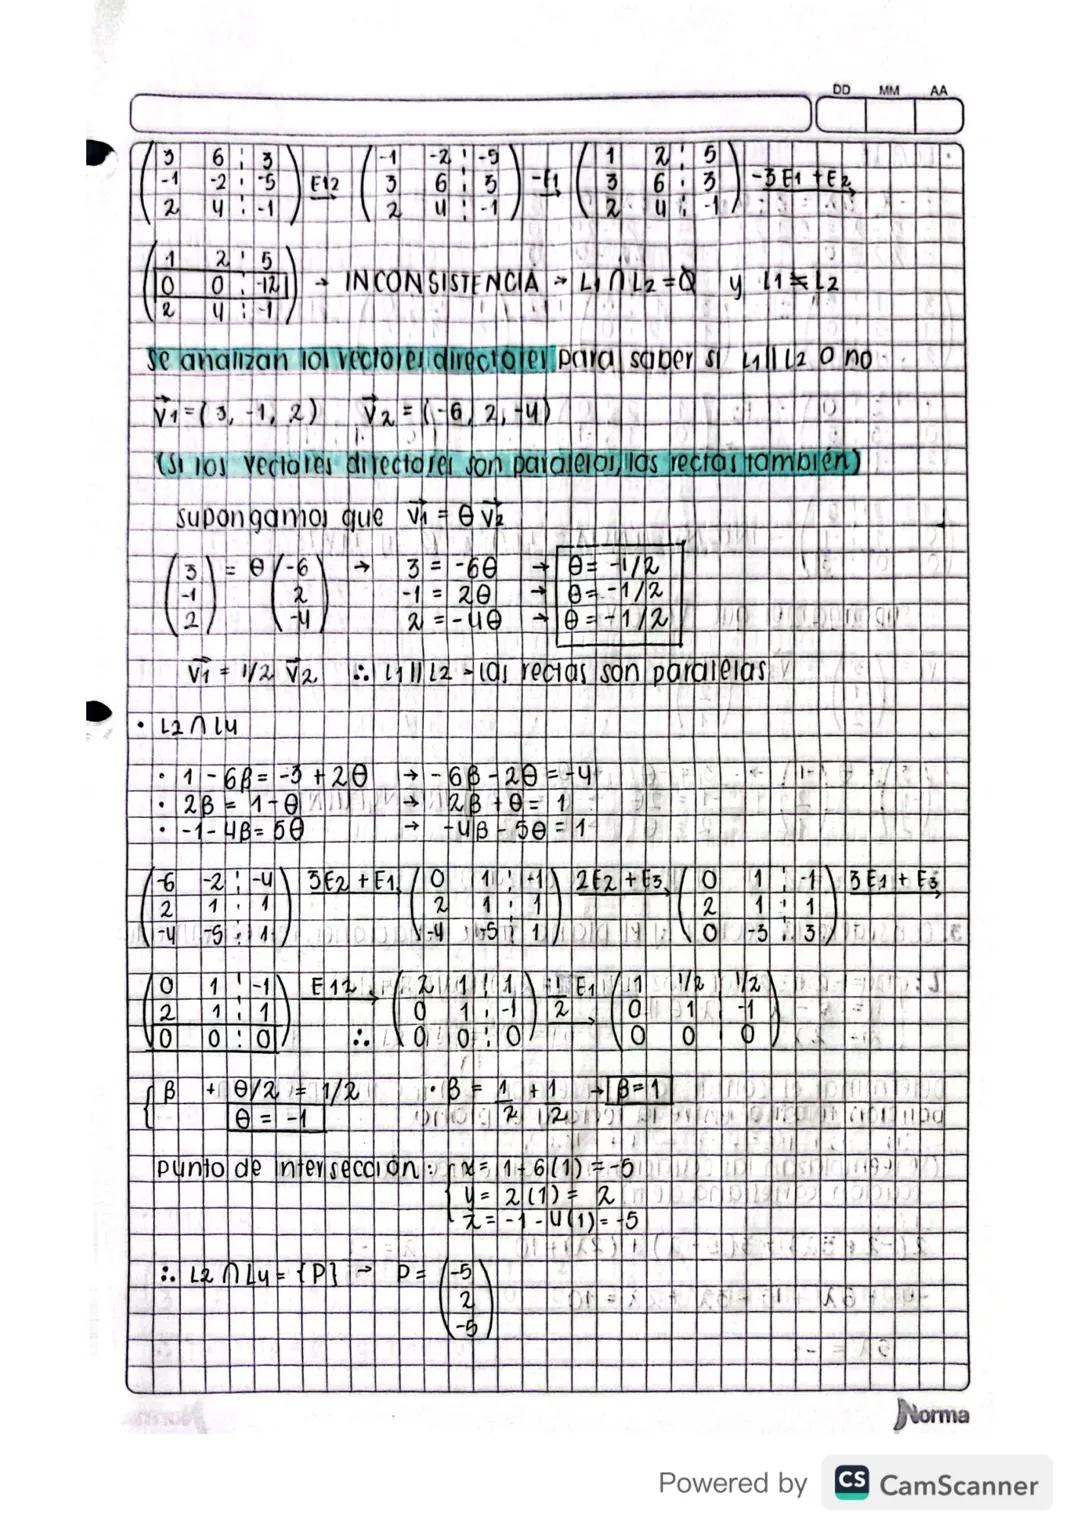 DD MM AA
( 3 6 ⋮ 3 ) ( -1 -2 ⋮ -5 ) ( 1 2 ⋮ 5 )
( -1 -2 ⋮ -5 ) E12 → ( 3 6 ⋮ 3 ) -E1 → ( 3 6 ⋮ 3 ) -3E1 + E2 →
( 2 4 ⋮ -1 ) ( 2 4 ⋮ -1 ) ( 2 4 ⋮ -1 )
( 1 2 ⋮ 5 )
( 0 0 ⋮ -12 ) → INCONSISTENCIA → L1 ∩ L2 = Ø y L1 ≠ L2
( 2 4 ⋮ -1 )
se analizan los vectores directores para saber si L1 || L2 o no
v1 = (3, -1, 2) v2 = (-6, 2, -4)
(si los vectores directores son paralelos, las rectas también)
supongamos que v1 = θ v2
( 3 ) = θ ( -6 ) → 3 = -6θ → θ = -1/2
( -1 ) ( 2 ) -1 = 2θ → θ = -1/2
( 2 ) ( -4 ) 2 = -4θ → θ = -1/2
v1 = 1/2 v2 ∴ L1 || L2 → las rectas son paralelas
• L2 ∩ L4
• 1 - 6β = -3 + 2θ → -6β - 2θ = -4
• 2β = 1 - θ → 2β + θ = 1
• -1 - 4β = 5θ → -4β - 5θ = 1
( -6 -2 ⋮ -4 ) 3E2 + E1 → ( 0 1 ⋮ +1 ) 2E2 + E3 → ( 0 1 ⋮ -1 ) 3E1 + E3 →
( 2 1 ⋮ 1 ) ( 2 1 ⋮ 1 ) ( 2 1 ⋮ 1 )
( -4 -5 ⋮ 1 ) ( -4 -5 ⋮ 1 ) ( 0 -3 ⋮ 3 )
( 0 1 ⋮ -1 ) E12 → ( 2 1 ⋮ 1 ) 1/2 E1 → ( 1 1/2 ⋮ 1/2 )
( 2 1 ⋮ 1 ) ( 0 1 ⋮ -1 ) ( 0 1 ⋮ -1 )
( 0 0 ⋮ 0 ) ∴ ( 0 0 ⋮ 0 ) ( 0 0 ⋮ 0 )
{ β + θ/2 = 1/2 • β = 1/2 + 1/2 → β = 1
θ = -1
punto de intersección: { x = 1 - 6(1) = -5
y = 2(1) = 2
z = -1 - 4(1) = -5
∴ L2 ∩ L4 = {P} → P = ( -5 )
( 2 )
( -5 )
Norma
Powered by CS CamScanner